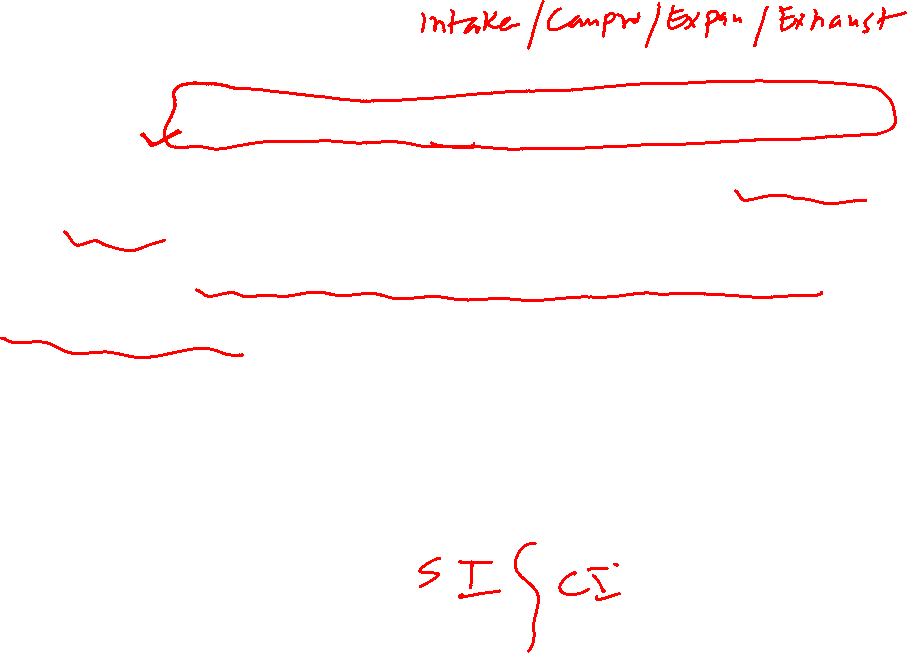 Intake / Compr / Expan / Exhaust
SI CI